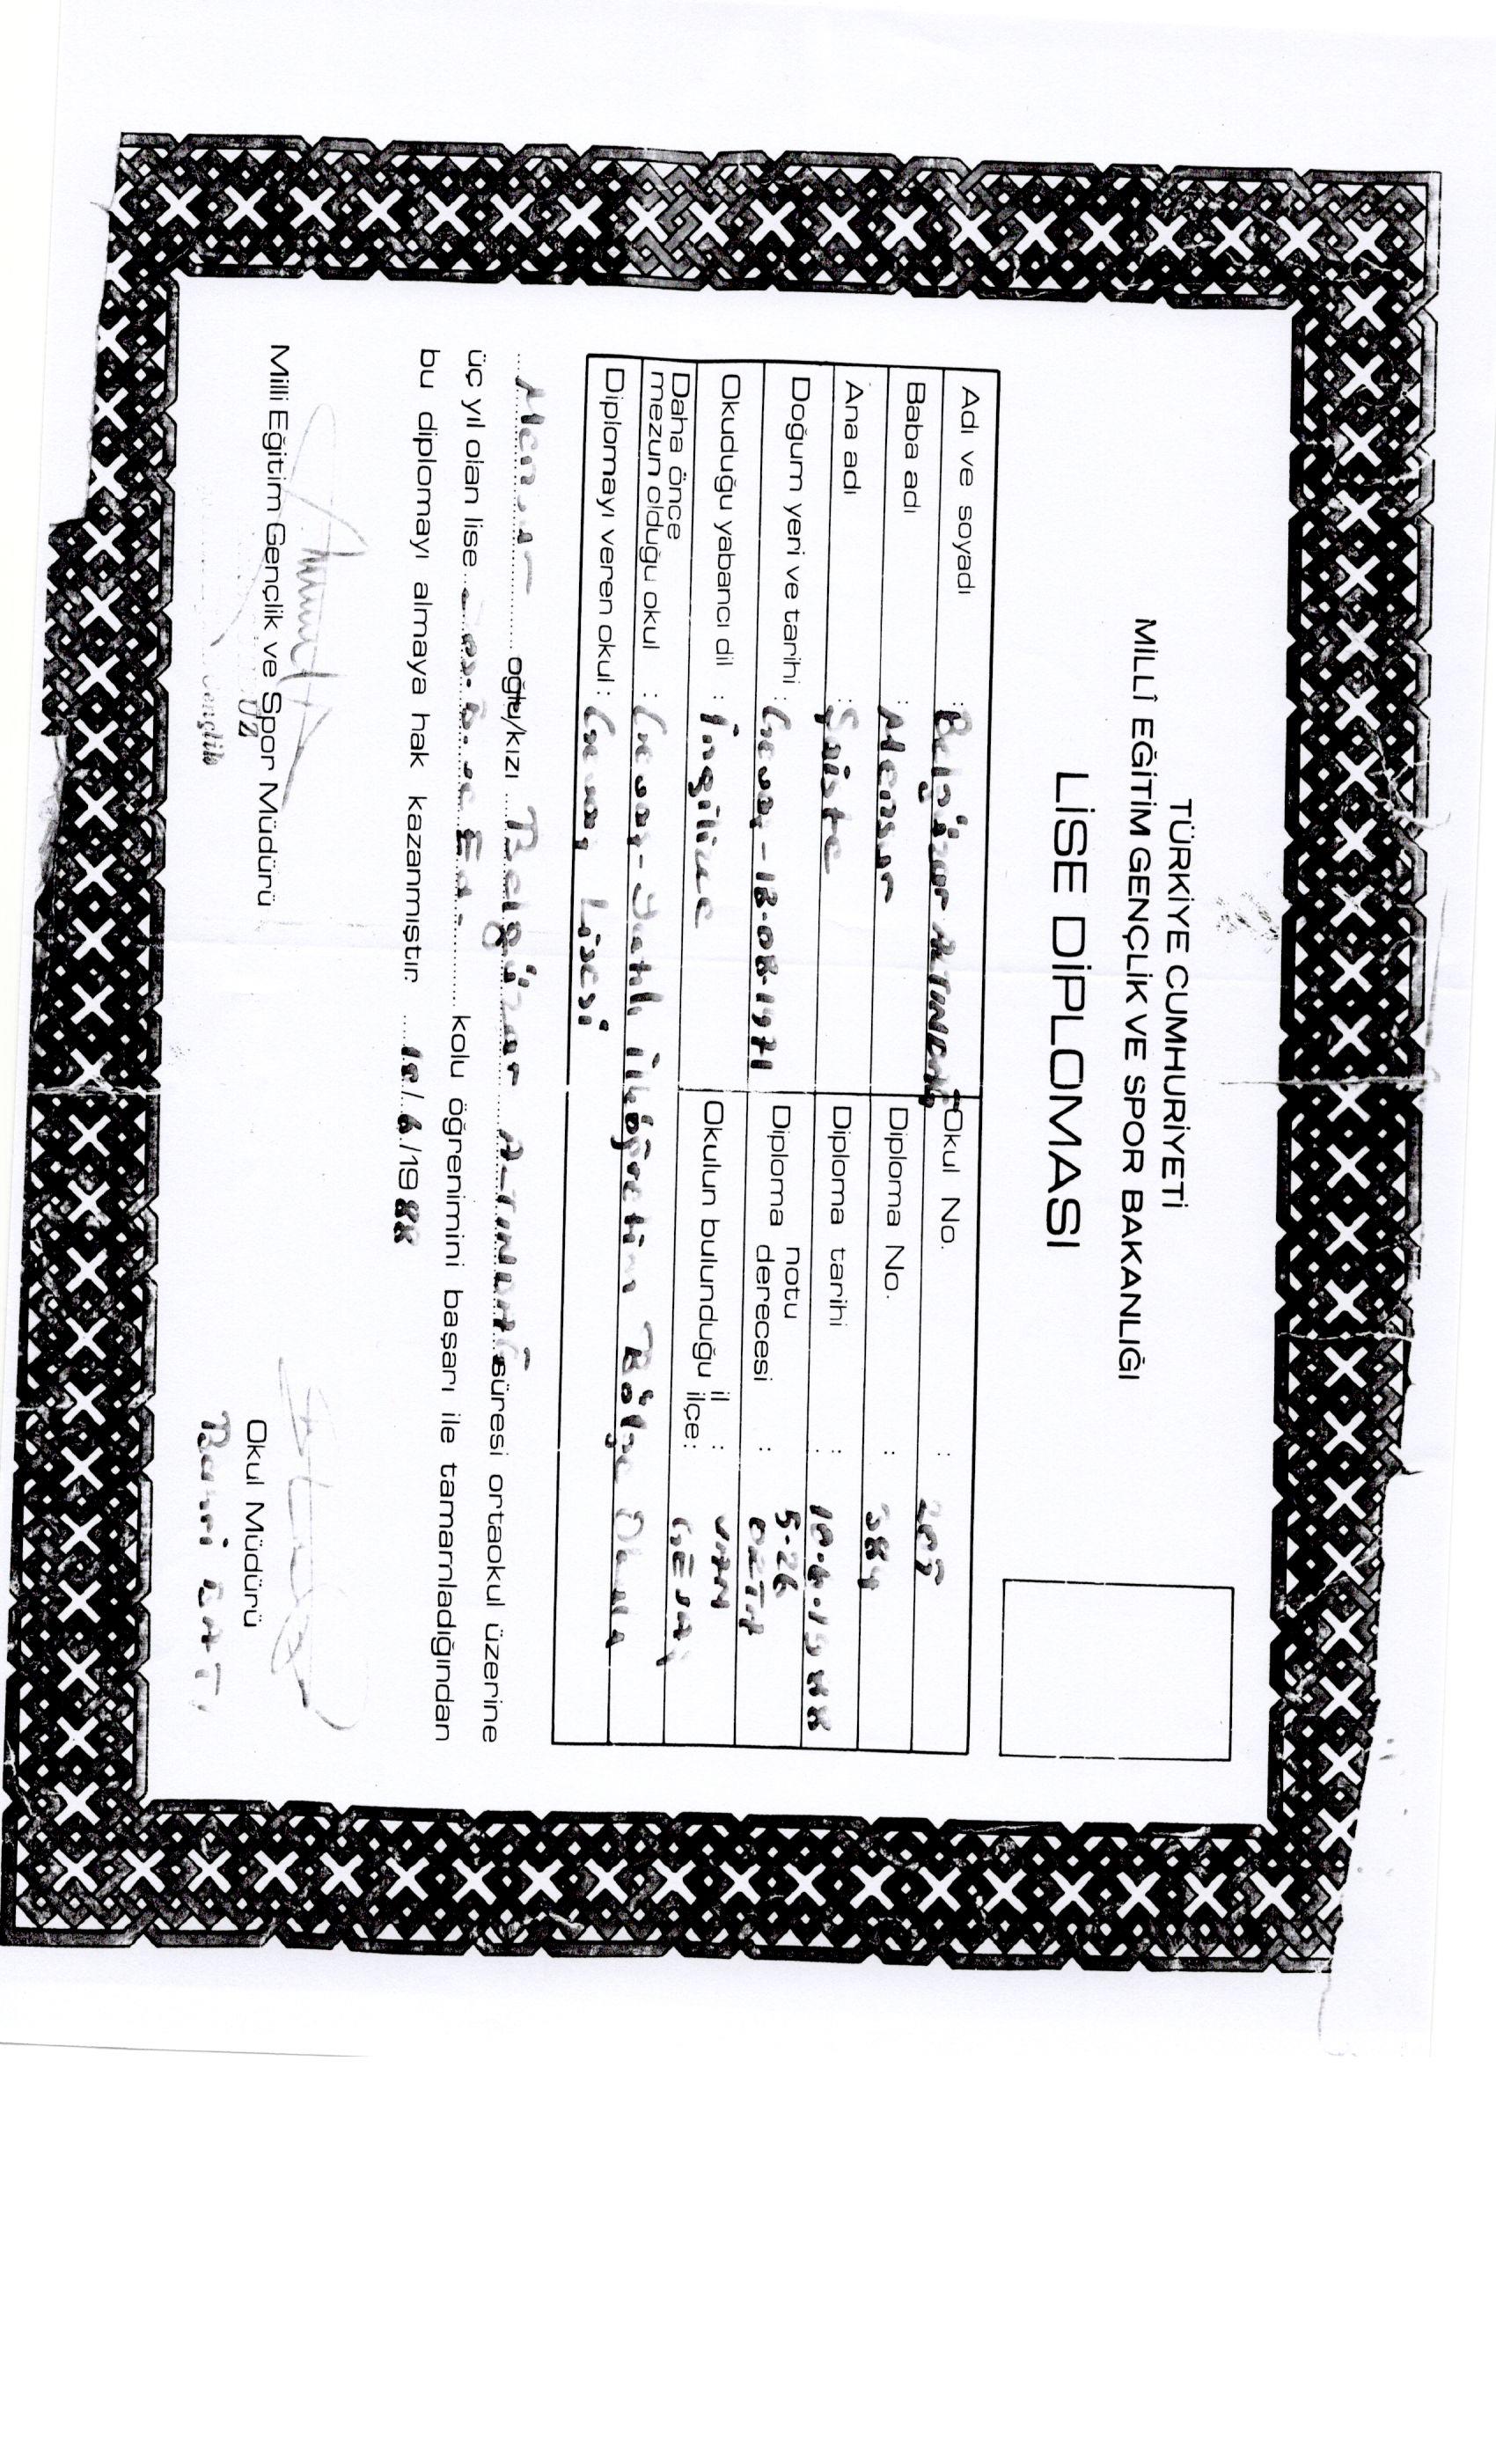 TÜRKİYE CUMHURİYETİ
MİLLÎ EĞİTİM GENÇLİK VE SPOR BAKANLIĞI
LİSE DİPLOMASI
Adı ve soyadı : Belgüzar
Okul No. :
Baba adı : Mensur
Diploma No. : 384
Ana adı : Şaiste
Diploma tarihi : 10.6.1988
Doğum yeri ve tarihi : Gevaş-18.08.1971
Diploma notu : 5-26
derecesi ORTA
Okuduğu yabancı dil : İngilizce
Okulun bulunduğu il : VAN
ilçe: GEVAŞ
Daha önce
mezun olduğu okul : Gevaş-Yatılı İlköğretim Bölge Okulu
Diplomayı veren okul : Gevaş Lisesi
Mensur oğlu/kızı Belgüzar süresi ortaokul üzerine
üç yıl olan lise Ed. kolu öğrenimini başarı ile tamamladığından
bu diplomayı almaya hak kazanmıştır. 10/6/1988
Milli Eğitim Gençlik ve Spor Müdürü
Okul Müdürü
UZ
Gençlik